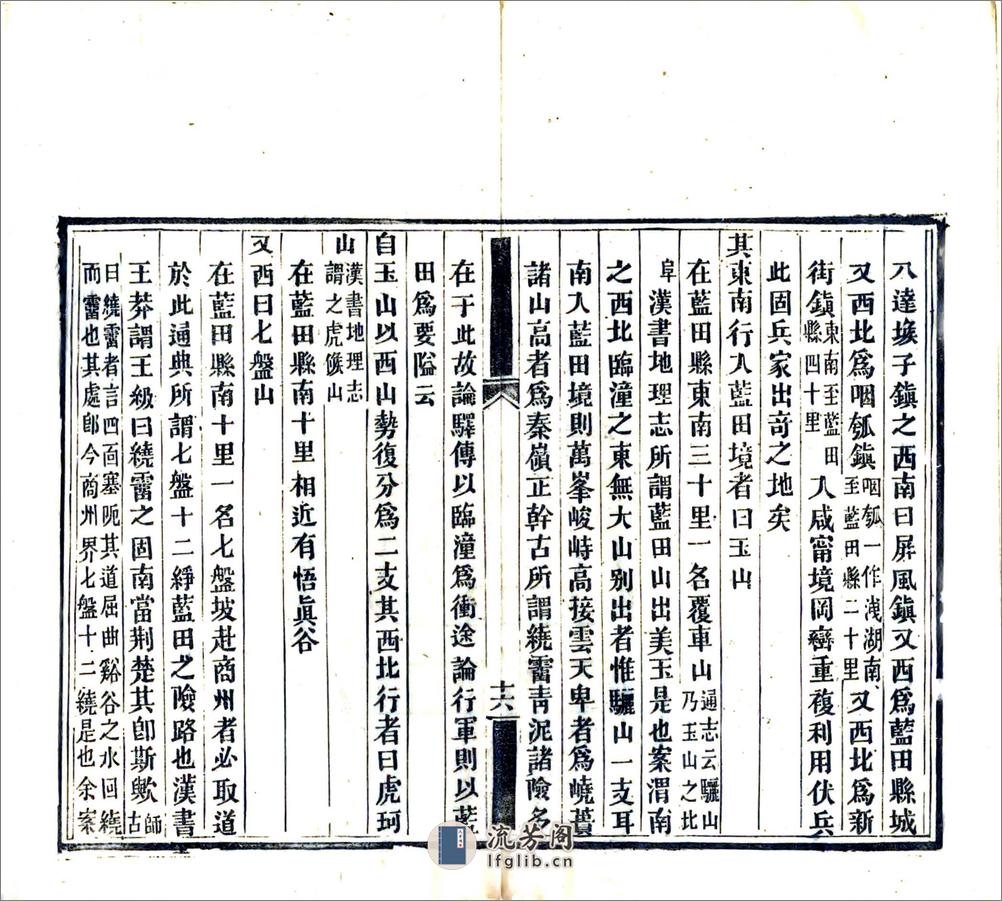 八達堠子鎮之西南曰屏風鎮又西爲藍田縣城
又西北爲咽瓠鎮咽瓠一作洩湖南至藍田縣二十里又西北爲新
街鎮東南至藍田縣四十里入咸甯境岡巒重複利用伏兵
此固兵家出奇之地矣
其東南行入藍田境者曰玉山
在藍田縣東南三十里一名覆車山通志云驪山乃玉山之北
阜漢書地理志所謂藍田山出美玉是也案渭南
之西北臨潼之東無大山别出者惟驪山一支耳
南入藍田境則萬峯峻峙高接雲天卑者爲嶢蕢
諸山高者爲秦嶺正幹古所謂繞霤靑泥諸險名
十六
在于此故論驛傳以臨潼爲衝途論行軍則以藍
田爲要隘云
自玉山以西山勢復分爲二支其西北行者曰虎珂
山漢書地理志謂之虎候山
在藍田縣南十里相近有悟眞谷
又西曰七盤山
在藍田縣南十里一名七盤坡赴商州者必取道
於此通典所謂七盤十二繂藍田之險路也漢書
王莽謂王級曰繞霤之固南當荆楚其卽斯歟師古
曰繞霤者言四面塞阨其道屈曲谿谷之水回繞
而霤也其處卽今商州界七盤十二繞是也余案
流芳阁
lfglib.cn